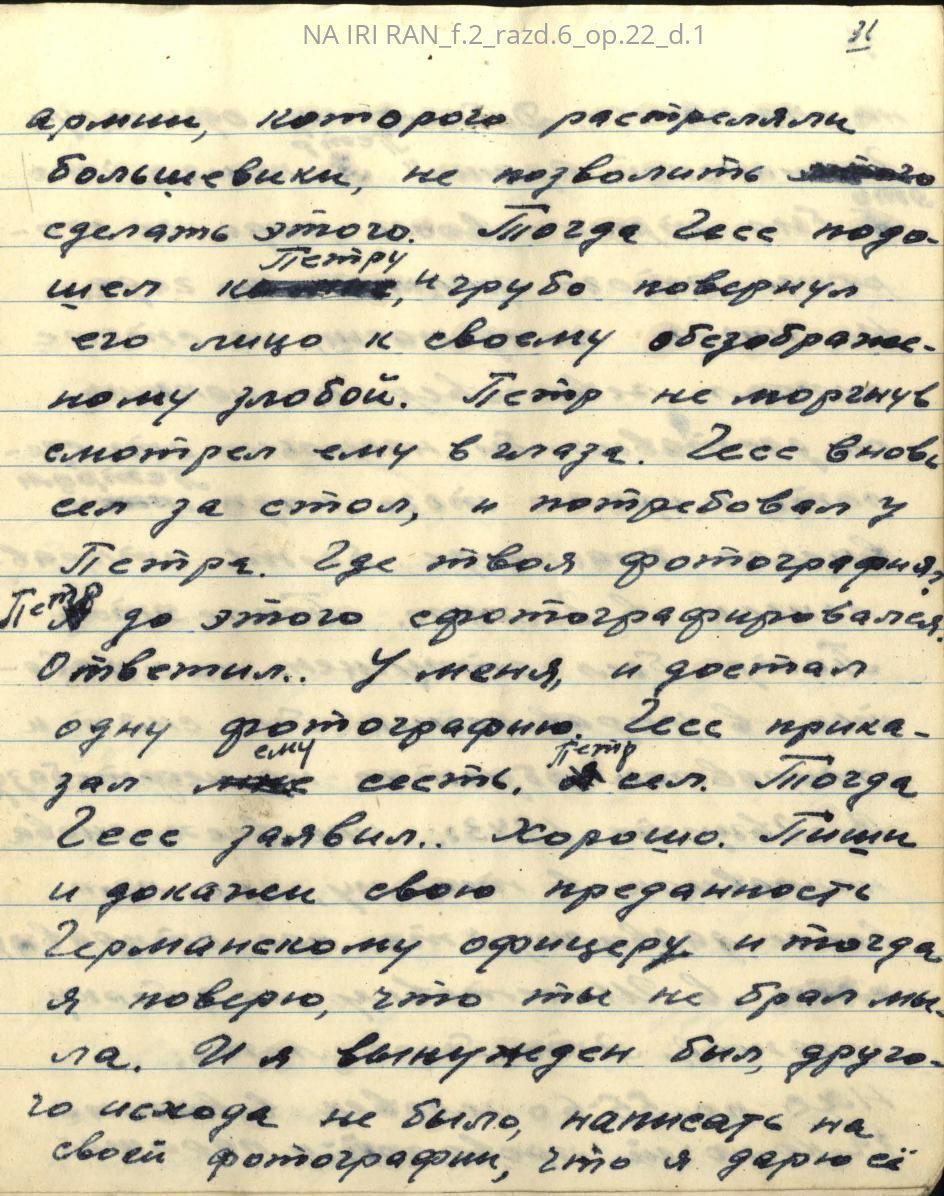 NA IRI RAN_f.2_razd.6_op.22_d.1
31
армии, которого растреляли
большевики, не позволить этого
сделать этого. Тогда Гесс подо-
Петру
шел ко мне, и грубо повернул
его лицо к своему обезображе-
ному злобой. Петр не моргнув
смотрел ему в глаза. Гесс вновь
сел за стол, и потребовал у
Петра. Где твоя фотография?
Петр
Я до этого сфотографировался.
Ответил.. У меня, и достал
одну фотографию. Гесс прика-
ему Петр
зал мне сесть. Я сел. Тогда
Гесс заявил.. Хорошо. Пиши
и докажи свою преданность
Германскому офицеру и тогда
я поверю, что ты не брал мы-
ла. И я вынужден был, друго-
го исхода не было, написать на
своей фотографии, что я дарю её